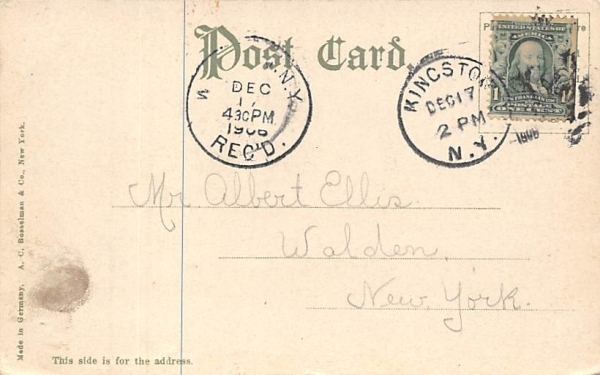 Post Card.
N.Y.
DEC
17
430PM
1906
REC'D.
KINGSTON
DEC 17
2 PM
N.Y.
1906
UNITED STATES OF AMERICA
Mr Albert Ellis.
Walden,
New York.
Made in Germany. A. C. Bosselman & Co., New York.
This side is for the address.